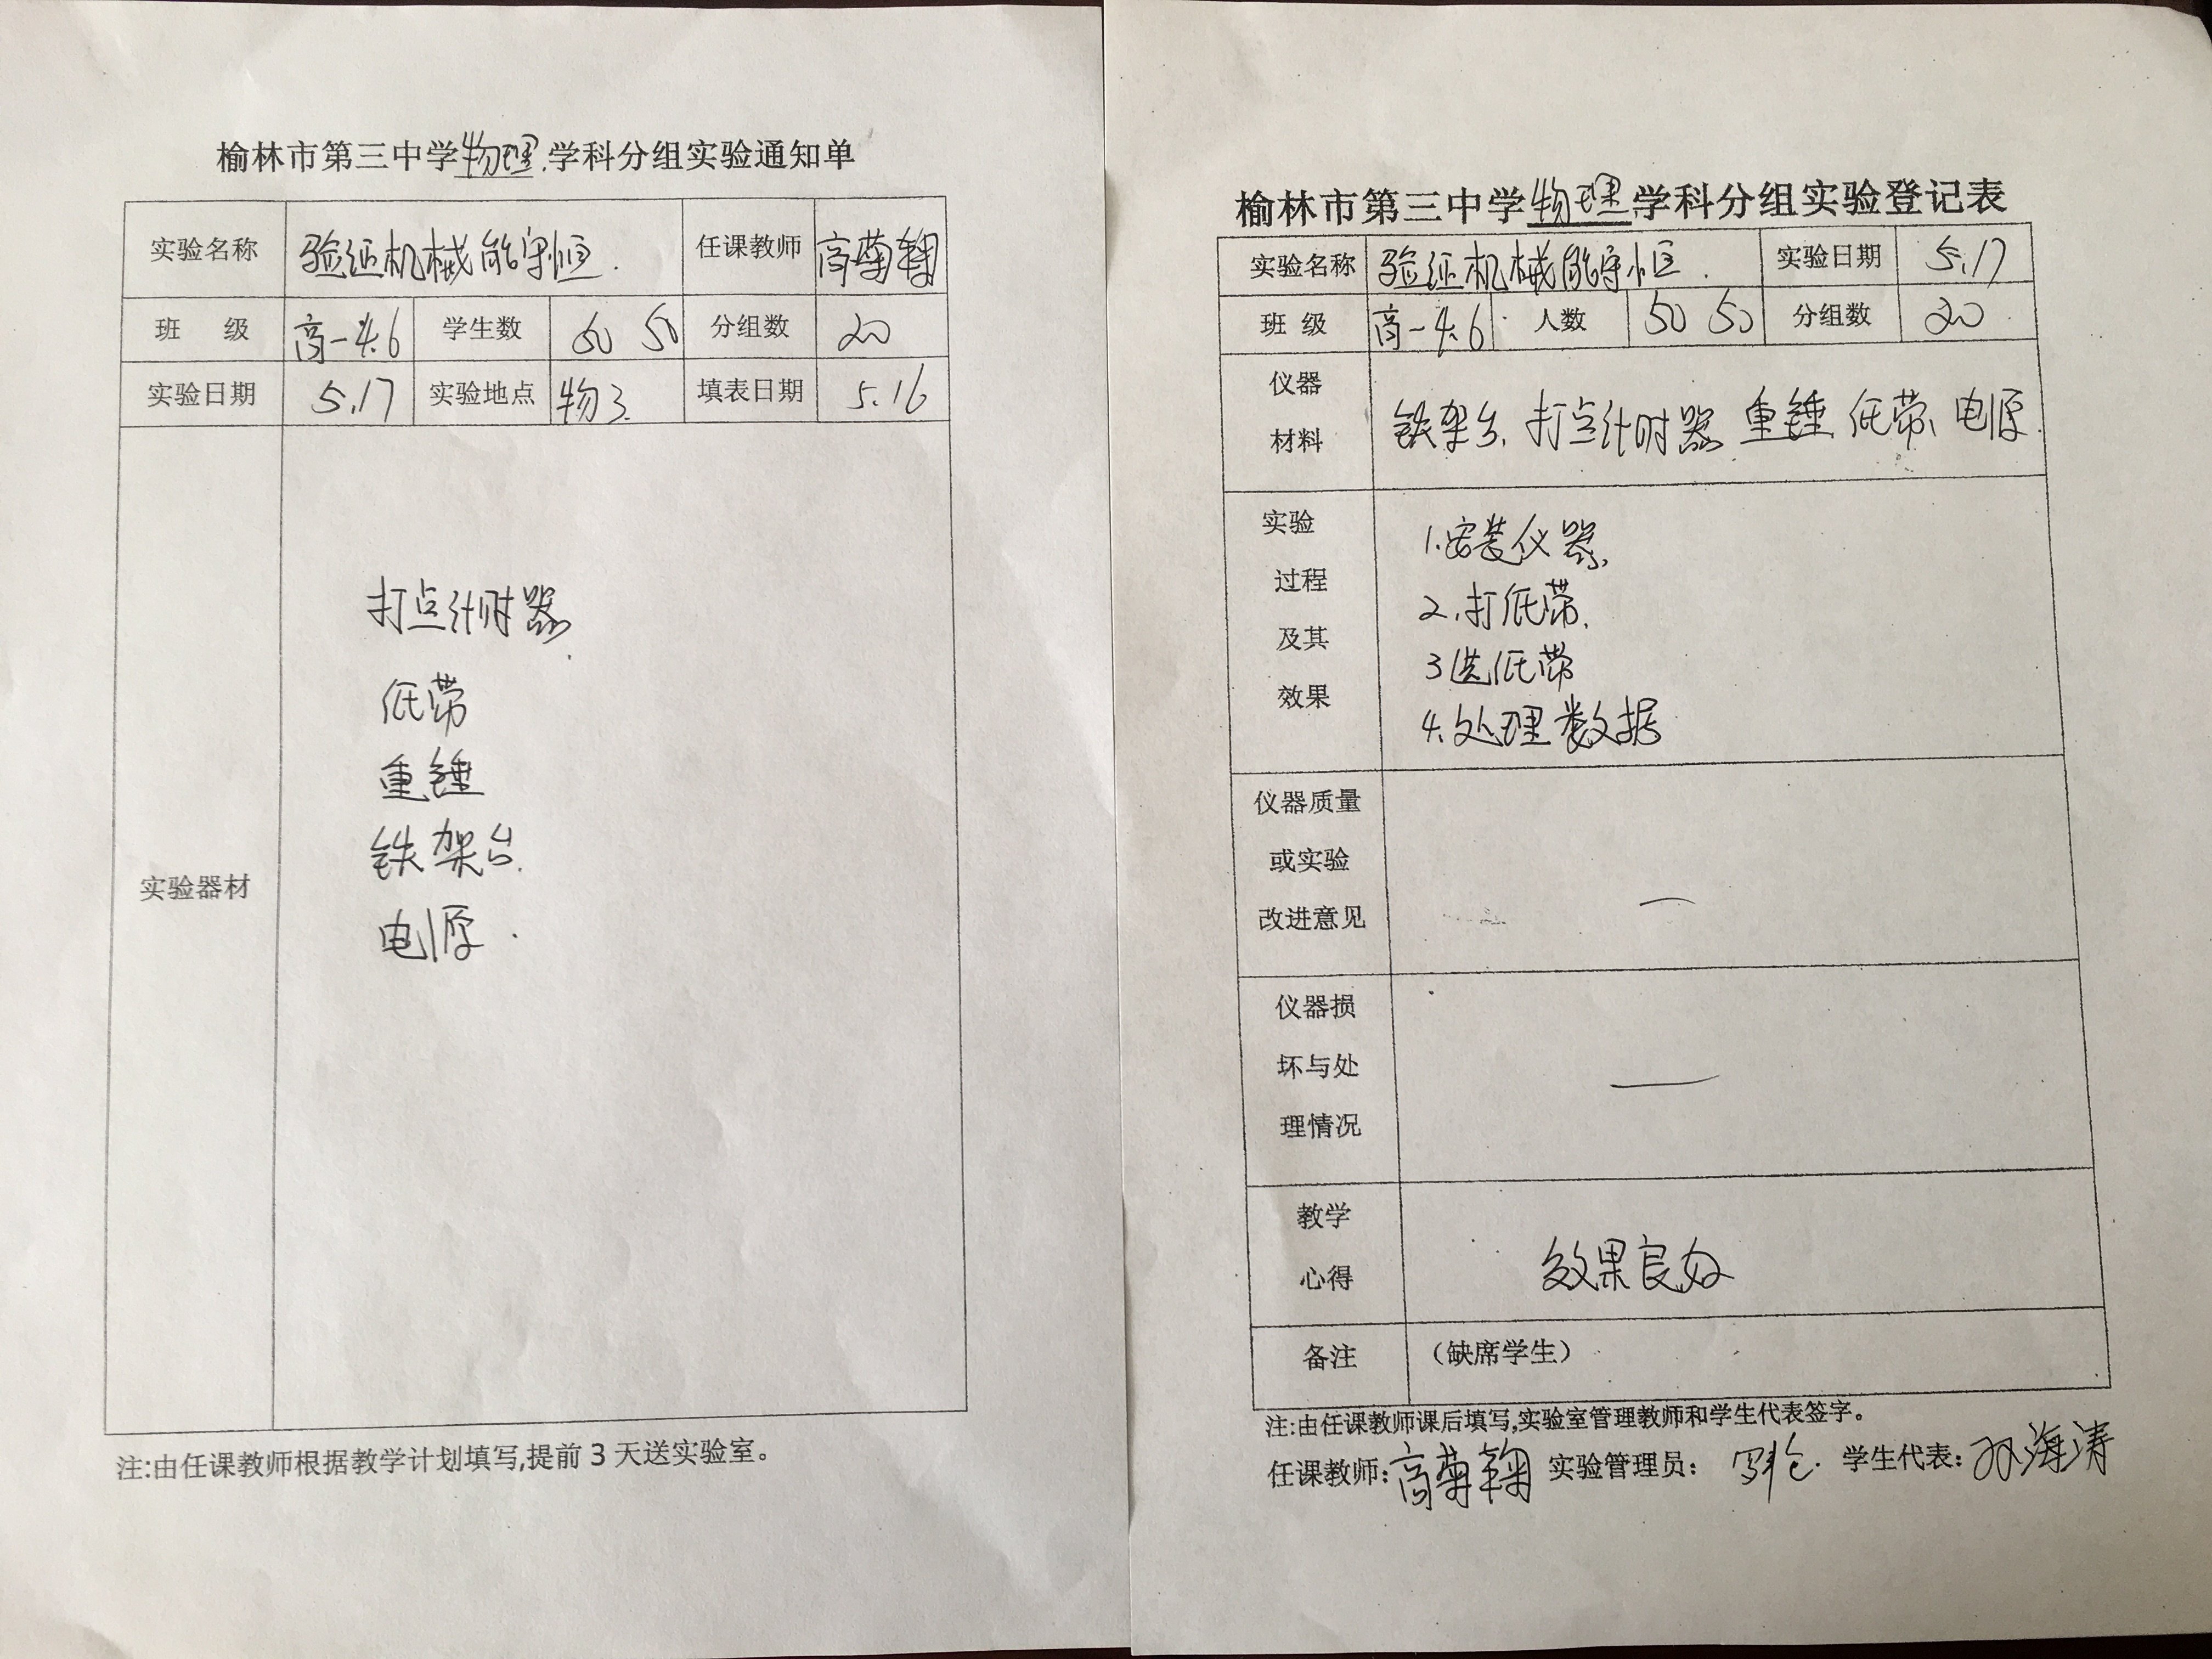 榆林市第三中学物理学科分组实验通知单
实验名称 验证机械能守恒. 任课教师 高菊鞠
班 级 高一4.6 学生数 50 50 分组数 20
实验日期 5.17 实验地点 物3. 填表日期 5.16
实验器材
打点计时器
纸带
重锤
铁架台.
电源.
注:由任课教师根据教学计划填写,提前3天送实验室。
榆林市第三中学物理学科分组实验登记表
实验名称 验证机械能守恒. 实验日期 5.17
班 级 高一4.6 人数 50 50 分组数 20.
仪器
材料
铁架台、打点计时器 重锤 纸带、电源.
实验
过程
及其
效果
1.安装仪器.
2.打纸带.
3选纸带
4.处理数据
仪器质量
或实验
改进意见
—
仪器损
坏与处
理情况
—
教学
心得
效果良好
备注 (缺席学生)
注:由任课教师课后填写,实验室管理教师和学生代表签字。
任课教师:高菊鞠 实验管理员: 学生代表:孙海涛